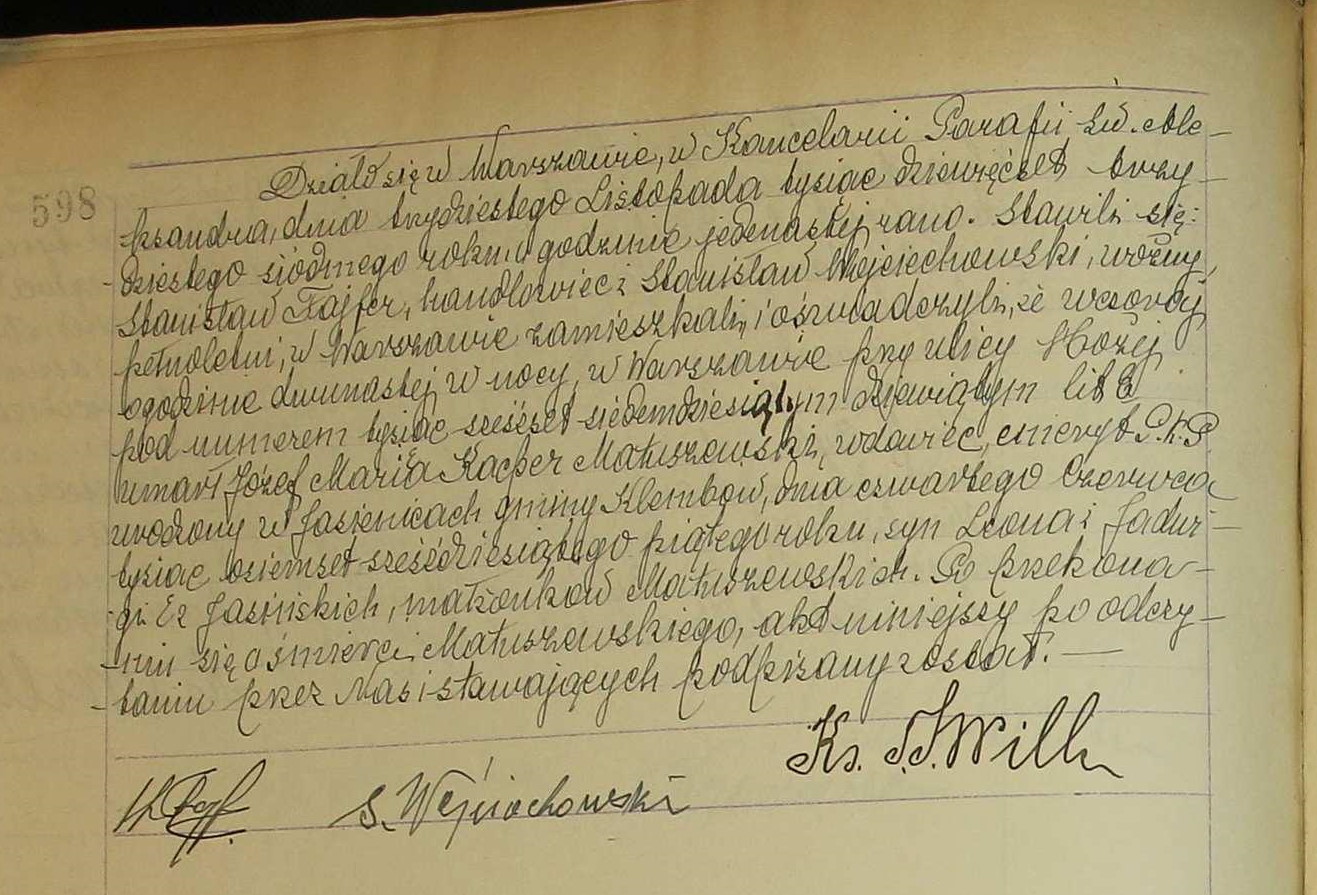 598
Działo się w Warszawie, w Kancelarii Parafii Św. Ale-
ksandra, dnia trzydziestego Listopada tysiąc dziewięćset trzy-
dziestego siódmego roku, o godzinie jedenastej rano. Stawili się:
Stanisław Fajfer, handlowiec i Stanisław Wojciechowski, woźny,
pełnoletni, w Warszawie zamieszkali, i oświadczyli, że wczoraj
o godzinie dwunastej w nocy, w Warszawie przy ulicy Hożej
pod numerem tysiąc sześćset siedemdziesiątym dziewiątym lit E
umarł Józef Maria Kacper Matuszewski, wdowiec, emeryt P.K.P.
urodzony w Jasienicach gminy Klembow, dnia czwartego Czerwca
tysiąc osiemset sześćdziesiątego piątego roku, syn Leona i Jadwi-
gi z Jasińskich, małżonków Matuszewskich. Po przekona-
niu się o śmierci Matuszewskiego, akt niniejszy po odczy-
taniu przez Nas i stawających podpisany został. —
Ks.
S. Wojciechowski